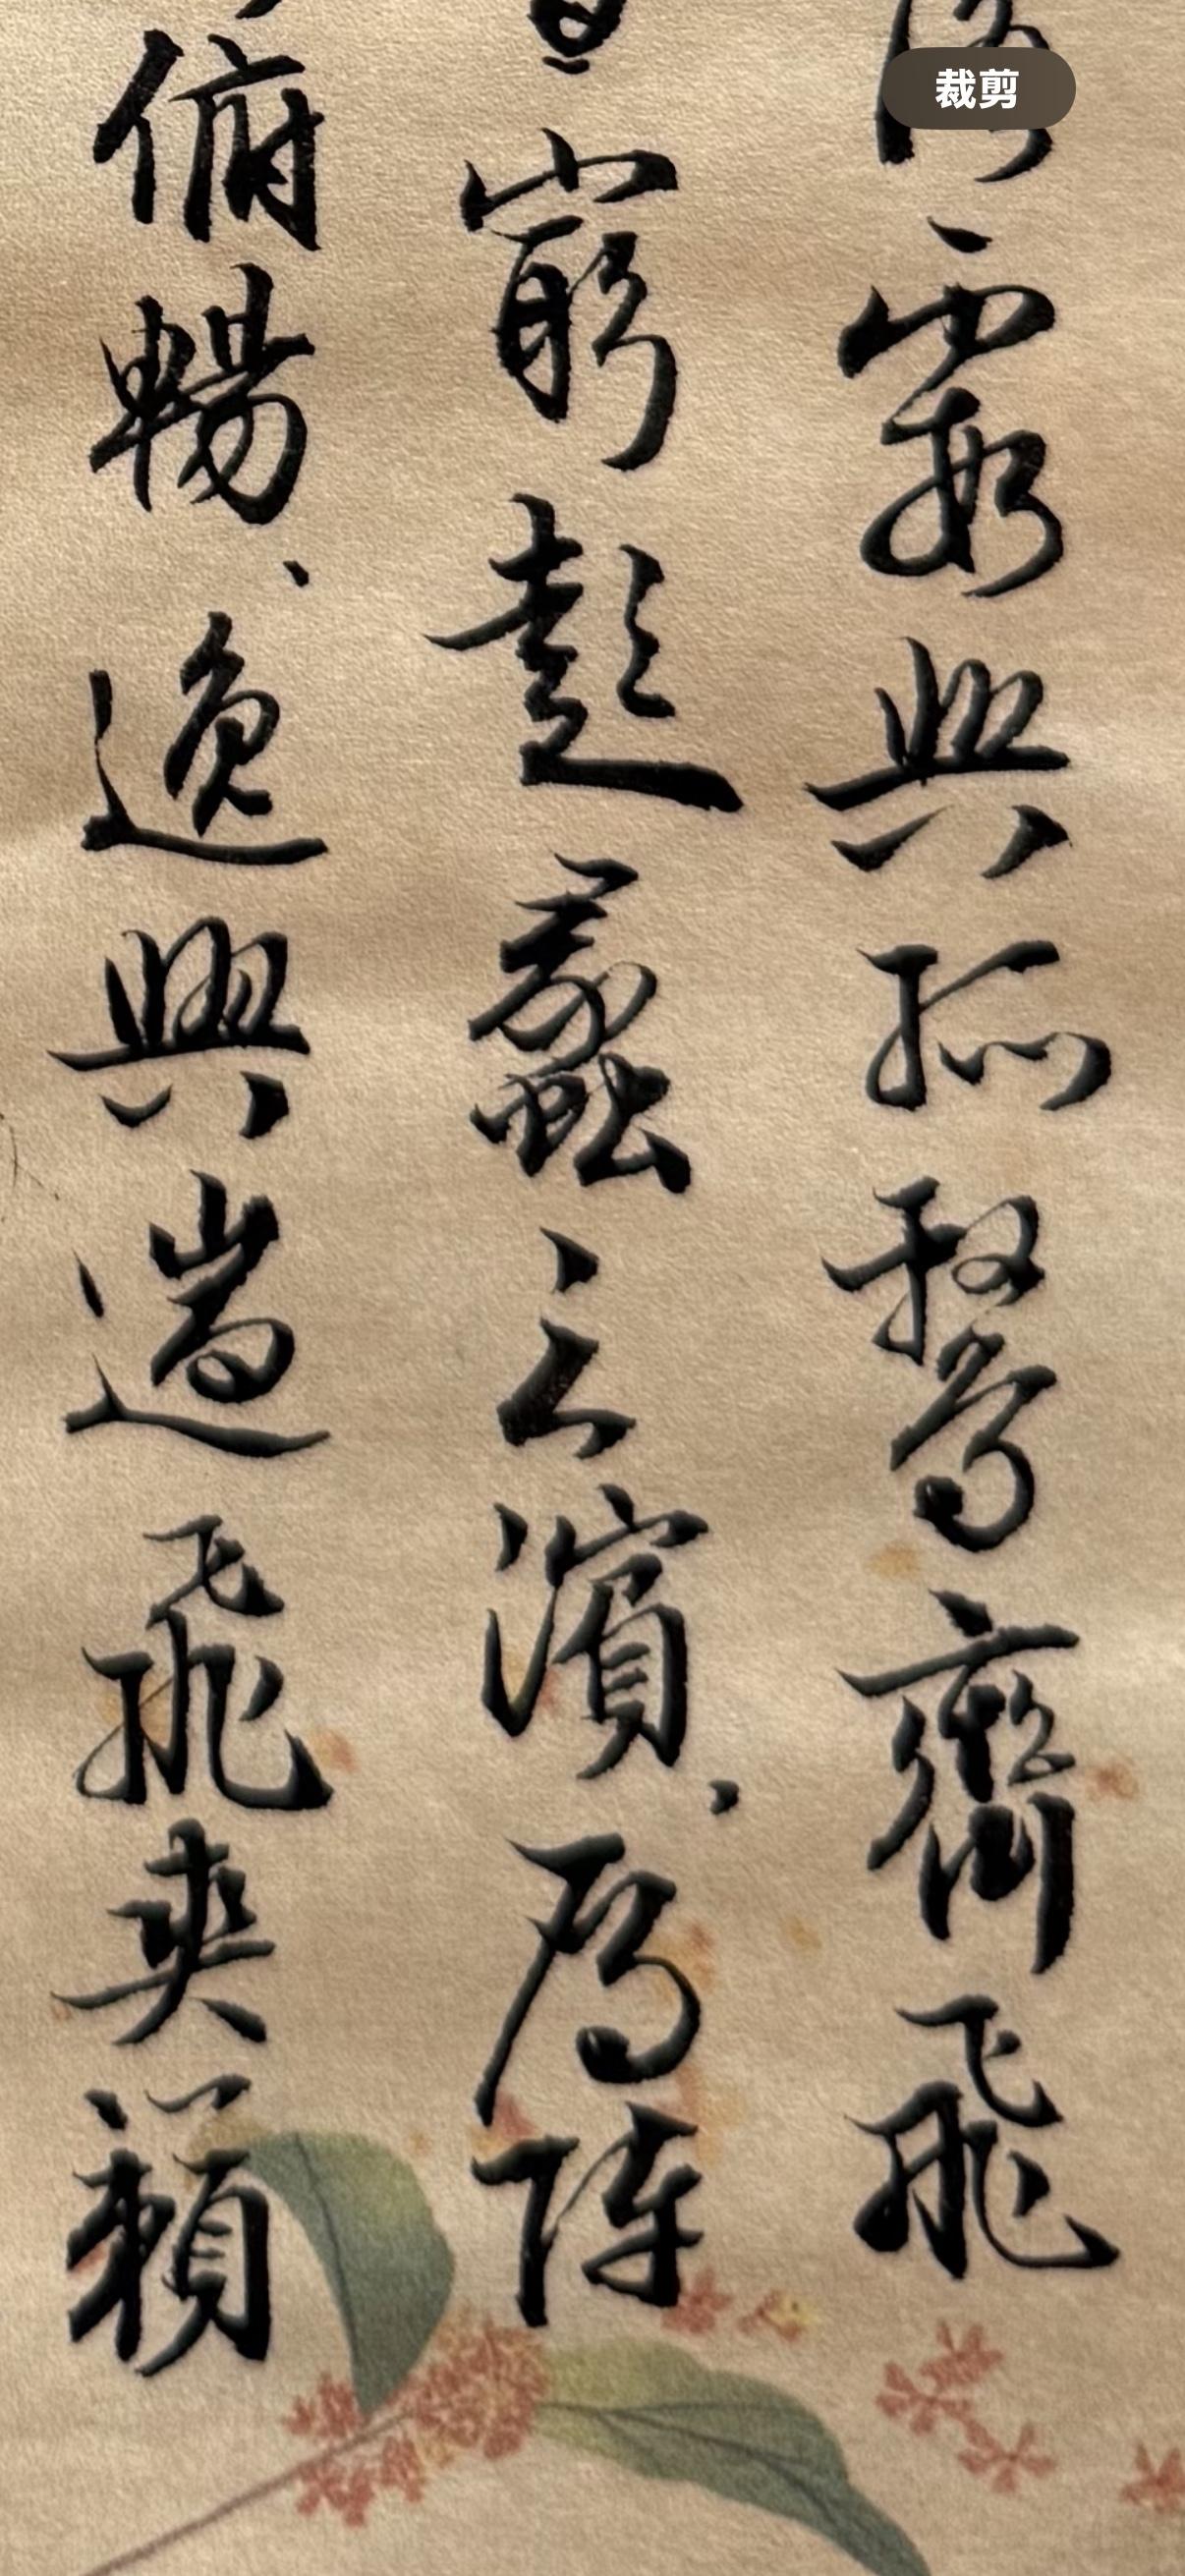 裁剪
落霞與孤鶩齊飛
窮彭蠡之濱鴈陣
俯暢逸興遄飛爽籟